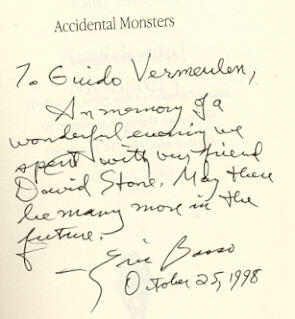 Accidental Monsters
To Guido Vermeulen,
In memory of a
wonderful evening we
spent with our friend
David Stone. May there
be many more in the
future.
— Eric Basso
October 25, 1998